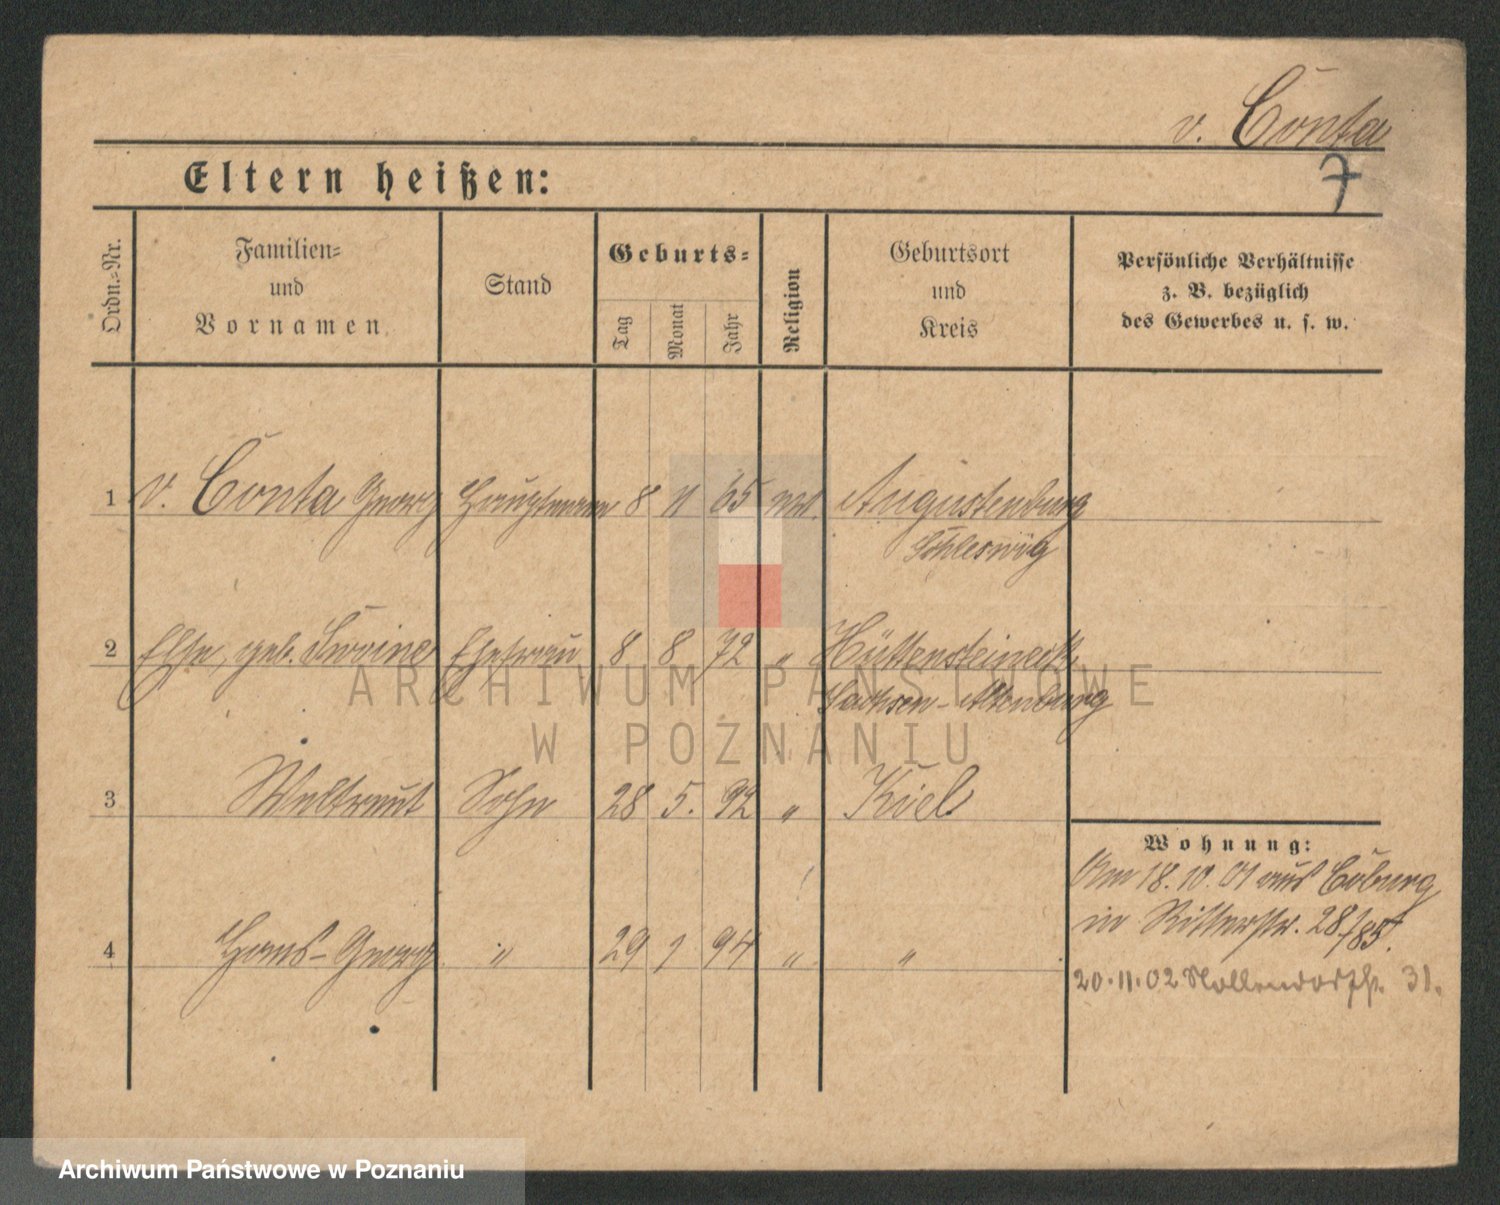 v. Conta
7
Eltern heißen:
Ordn.=Nr.
Familien=
und
Vornamen
Stand
Geburts=
Tag
Monat
Jahr
Religion
Geburtsort
und
Kreis
Persönliche Verhältnisse
z. B. bezüglich
des Gewerbes u. s. w.
1 v. Conta Georg Hauptmann 8 11 65 Augustenburg
Schleswig
2 Else, geb. Ehefrau 8 8 72 "
Sachsen-Altenburg
3 Weltraut Sohn 28 5. 92 " Kiel
4 Hans-Georg " 29 1 94 " "
Wohnung:
Am 18.10.01 aus Coburg
in Ritterstr. 28/85.
20.11.02 Nollendorfstr. 31.
ARCHIWUM PAŃSTWOWE
W POZNANIU
Archiwum Państwowe w Poznaniu